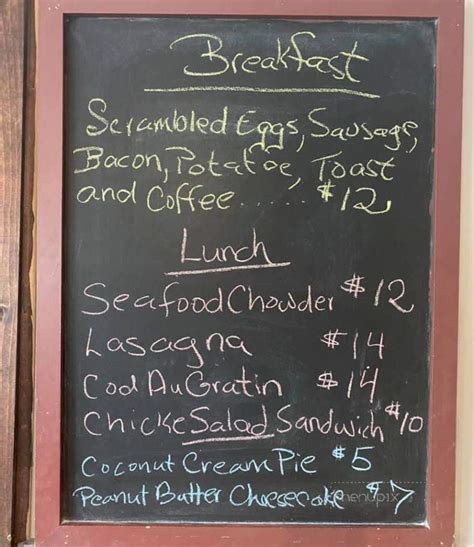 Breakfast
Scrambled Eggs, Sausage,
Bacon, Potatoe, Toast
and Coffee..... $12
Lunch
Seafood Chowder $12
Lasagna $14
Cod Au Gratin $14
Chicke Salad Sandwich $10
Coconut Cream Pie $5
Peanut Butter Cheesecake $7
menupix